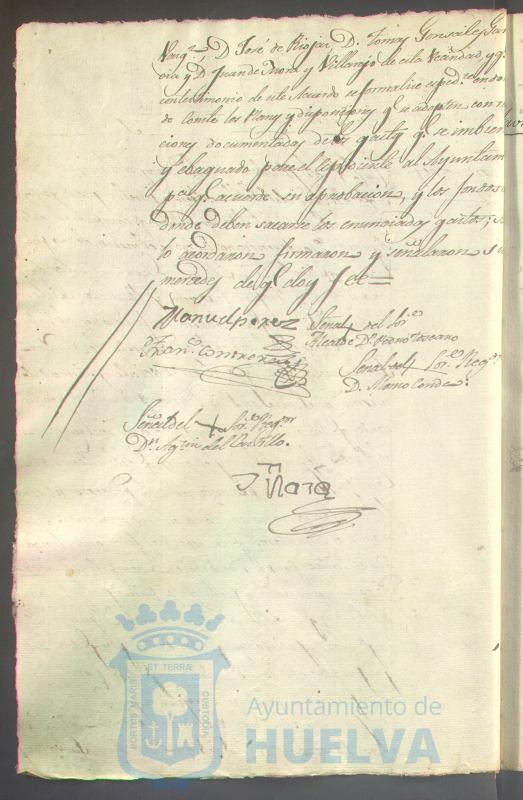 D. José de Rioja, D. Tomas Gonzales Gar
D. Juan de Mora y Villarejo de esta Vecindad, y q.e
con testimonio de este Acuerdo se forme
de Comite los Planes y disposiciones q.e se adopten con re
ciones documentadas de los gastos q.e se
y evaquado pase el Expediente al Ayuntam
p.a q.e acuerde su aprobacion, y los fondos
donde deben sacarse los enunciados gastos; 
lo acordaron firmaron y señalaron s
mercedes de q.e doy fee=
Manuel perez
Señal + del Sor.
Alcalde D.n Pedro Toscano
Fran.co Contreras
Señal del + Sor. Reg.or
D. Alonso Conde.
Señal del + Sor. Reg.or
D.n Ag.tin del Castillo.
PORTUS MARIS
ET TERRÆ
CUSTODIA
Ayuntamiento de
HUELVA